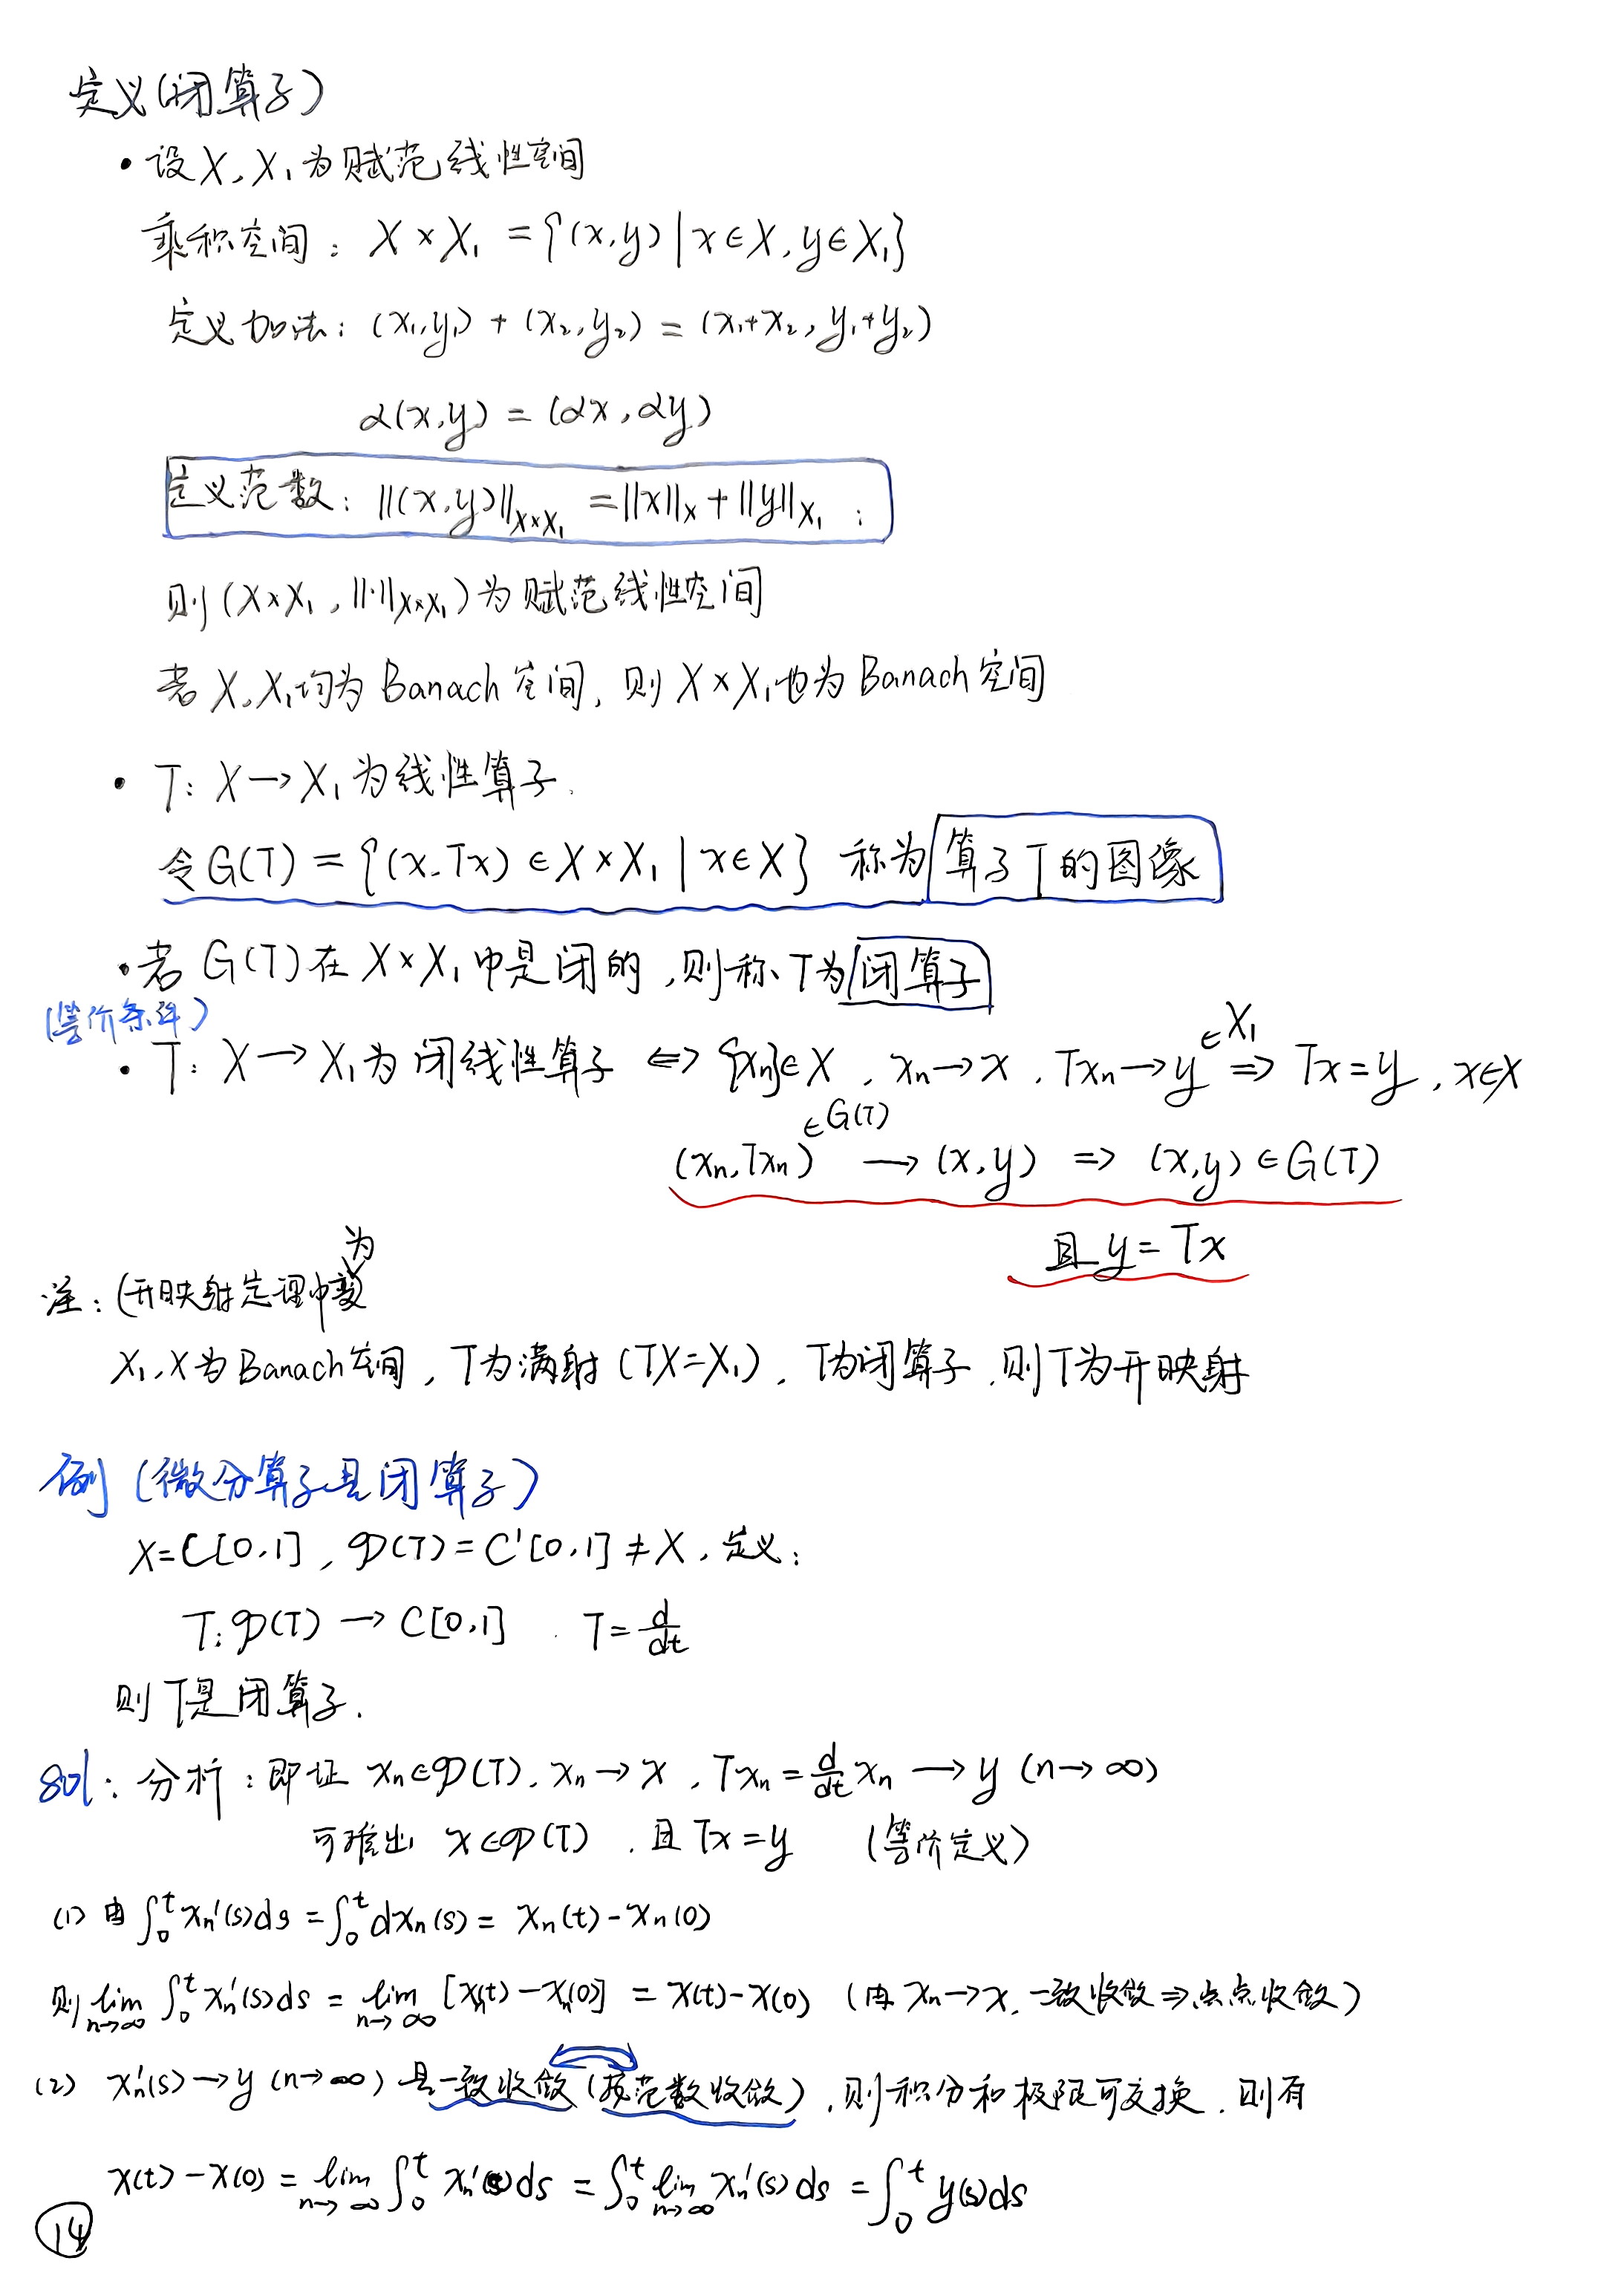 定义(闭算子)
• 设X, X₁为赋范线性空间
乘积空间: X × X₁ = {(x,y) | x∈X, y∈X₁}
定义加法: (x₁,y₁) + (x₂,y₂) = (x₁+x₂, y₁+y₂)
α(x,y) = (αx, αy)
定义范数: ||(x,y)||_{X×X₁} = ||x||_X + ||y||_{X₁} ;
则 (X×X₁, ||·||_{X×X₁}) 为赋范线性空间
若 X, X₁均为 Banach 空间, 则 X × X₁也为 Banach 空间
• T: X → X₁ 为线性算子.
令 G(T) = {(x, Tx) ∈ X × X₁ | x∈X} 称为 算子 T 的图像
• 若 G(T) 在 X × X₁ 中是闭的, 则称 T为 闭算子
(等价条件)
• T: X → X₁为 闭线性算子 ⇔ {xₙ}∈X, xₙ→x, Txₙ→y ∈X₁ ⇒ Tx=y, x∈X
(xₙ,Txₙ) ∈G(T) → (x,y) ⇒ (x,y)∈G(T)
且 y = Tx
注: (开映射定理中变为
X₁, X为 Banach空间, T为满射 (TX=X₁), T为闭算子, 则T为开映射
例 (微分算子是闭算子)
X=C[0,1], 𝒟(T) = C'[0,1] ≠ X, 定义:
T: 𝒟(T) → C[0,1] . T = d/dt
则 T是闭算子.
sol: 分析: 即证 xₙ∈𝒟(T), xₙ→x, Txₙ = d/dt xₙ → y (n→∞)
可推出 x∈𝒟(T), 且 Tx=y (等价定义)
(1) 由 ∫₀ᵗ xₙ'(s)ds = ∫₀ᵗ dxₙ(s) = xₙ(t)-xₙ(0)
则 lim_{n→∞} ∫₀ᵗ xₙ'(s)ds = lim_{n→∞} [xₙ(t)-xₙ(0)] = x(t)-x(0) (由 xₙ→x, 一致收敛⇒点点收敛)
(2) xₙ'(s)→y (n→∞) 是一致收敛 (按范数收敛), 则积分和极限可交换. 则有
x(t)-x(0) = lim_{n→∞} ∫₀ᵗ xₙ'(s)ds = ∫₀ᵗ lim_{n→∞} xₙ'(s)ds = ∫₀ᵗ y(s)ds
14